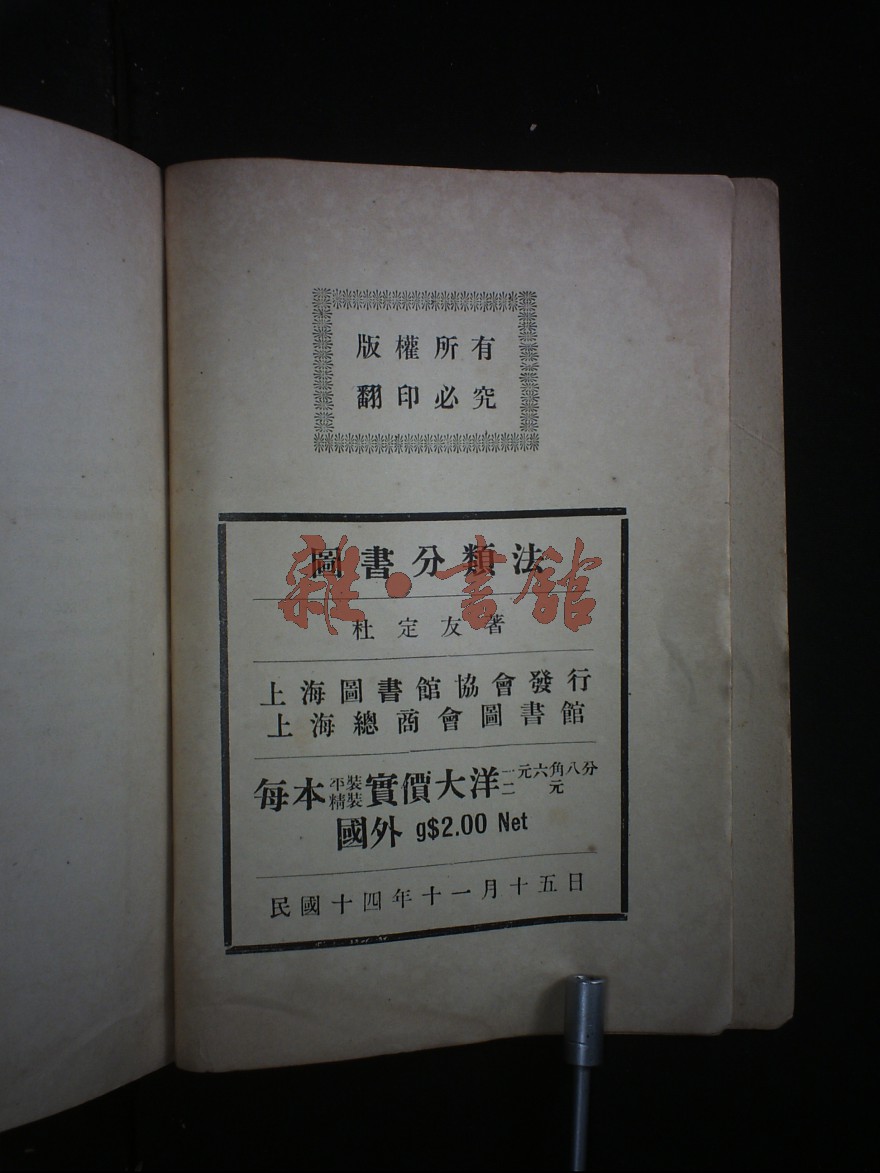 版權所有
翻印必究
圖書分類法
雜·書館
杜定友著
上海圖書館協會發行
上海總商會圖書館
每本平裝精裝實價大洋一元六角八分二元
國外 g$2.00 Net
民國十四年十一月十五日